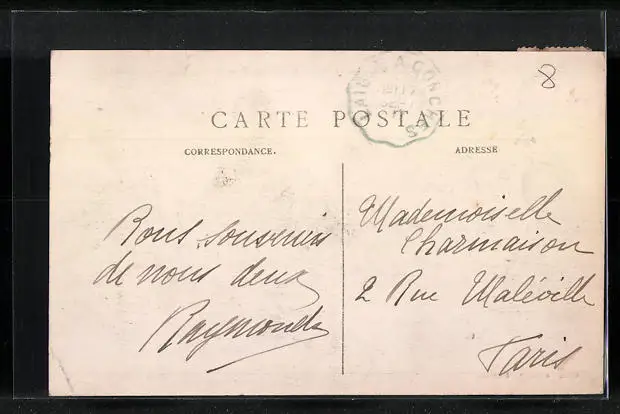 8
L'AIGLE A CONCHES
CARTE POSTALE
CORRESPONDANCE.
ADRESSE
Bons souvenirs
de nous deux
Raymonde
Mademoiselle
Charmaison
2 Rue Maléville
Paris